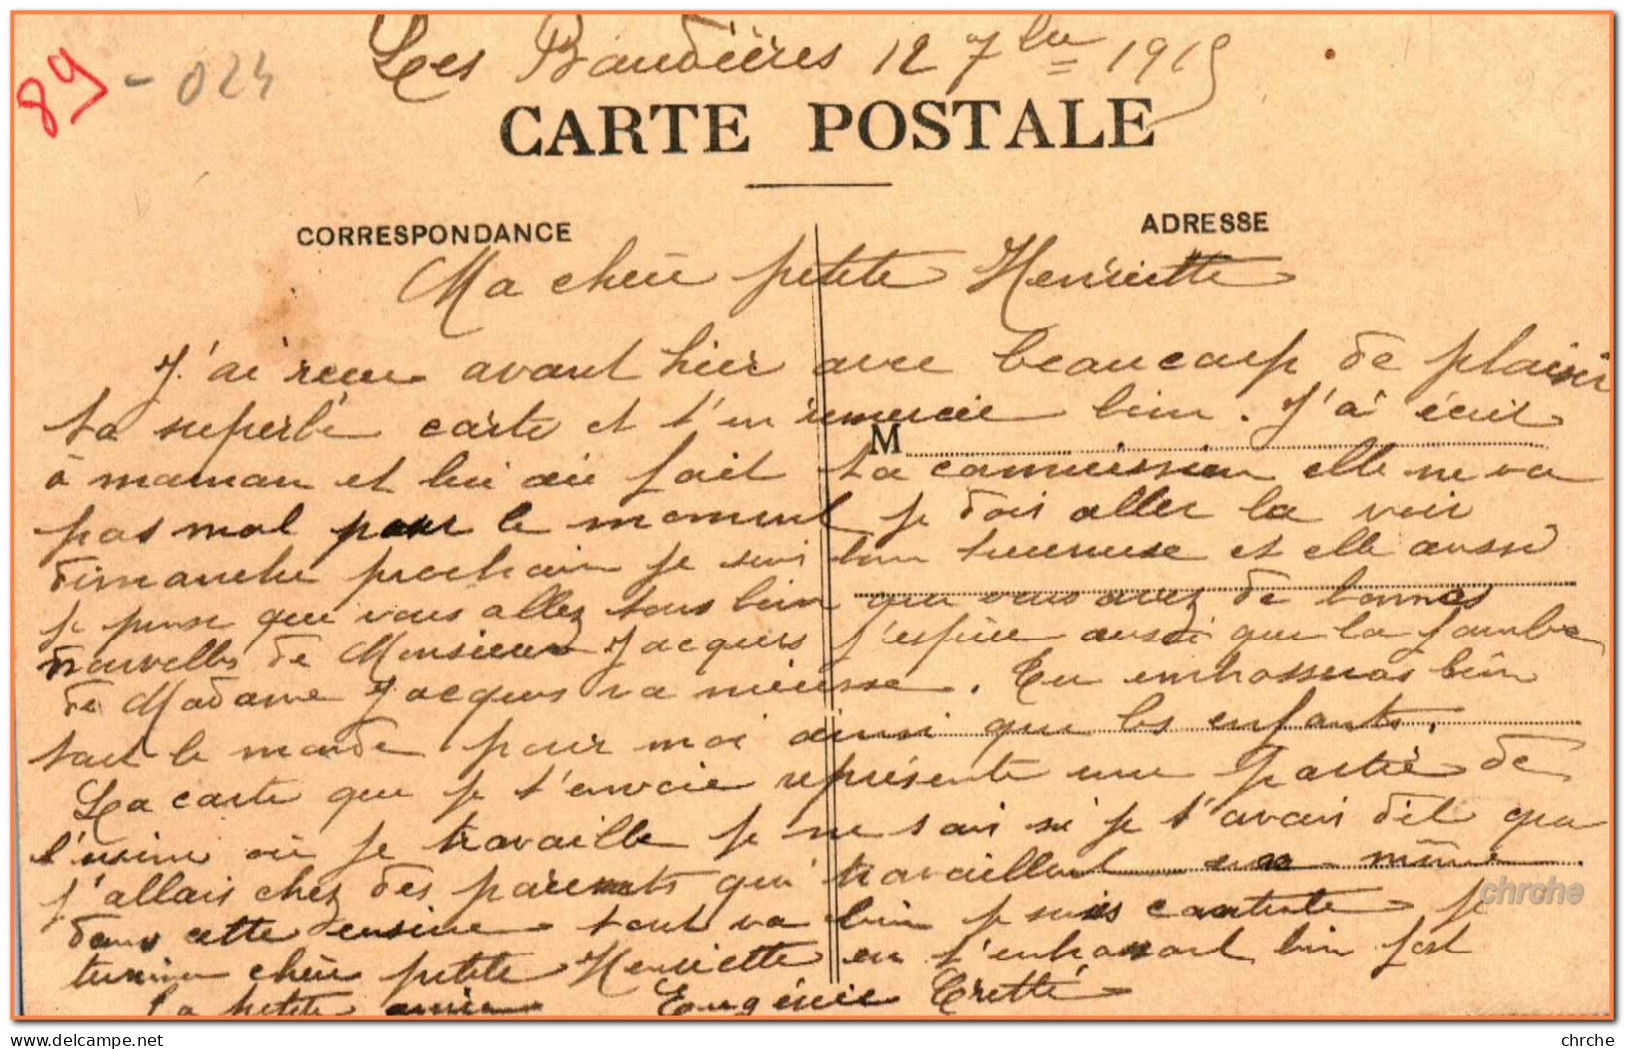 89 - 024
Les Baudières 12 7bre 1915
CARTE POSTALE
CORRESPONDANCE
ADRESSE
Ma chère petite Henriette
J'ai recu avant hier avec beaucoup de plaisir
ta superbe carte et t'en remercie bien. J'ai écrit
M
à maman et lui ai fait ta commission elle ne va
pas mal pour le moment je dois aller la voir
dimanche prochain je suis bien heureuse et elle aussi
je pense que vous allez tous bien que vous avez de bonnes
nouvelles de Monsieur Jacques j'espère aussi que la jambe
de Madame Jacques va mieux. Tu embrasseras bien
tout le monde pour moi ainsi que les enfants.
La carte que je t'envoie représente une partie de
l'usine où je travaille je ne sais si je t'avais dit que
j'allais chez des parents qui travaillent même
chrche
dans cette usine tout va bien je suis contente je
termine chère petite Henriette en t'embrassant bien fort
la petite amie Eugénie Cretté
delcampe.net
chrche